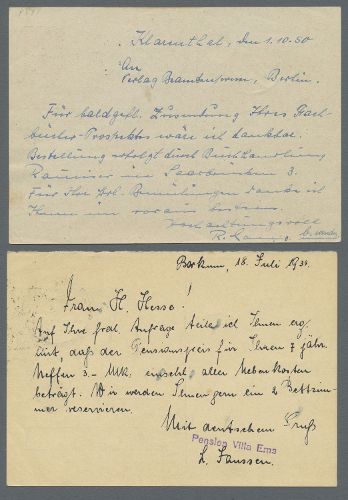 Klarenthal, den 1.10.50
An
Verlag Beamtenwesen, Berlin.
Für baldgefl. Zusendung Ihres Fach-
bücher-Prospektes wäre ich dankbar.
Bestellung erfolgt durch Buchhandlung
in Saarbrücken 3.
Für Ihre frdl. Bemühungen danke ich
Ihnen im voraus bestens
Hochachtungsvoll
R.
Borkum, 18. Juli 1934.
Frau H. Hesse!
Auf Ihre frdl. Anfrage teile ich Ihnen erg.
 daß der Pensionspreis für Ihren 7 jähr.
Neffen 3.- Mk. einschl. aller Nebenkosten
beträgt. Wir werden Ihnen gern ein 2 Bettzim-
mer reservieren.
Mit deutschem Gruß
Pension Villa Ems
L. Janssen.